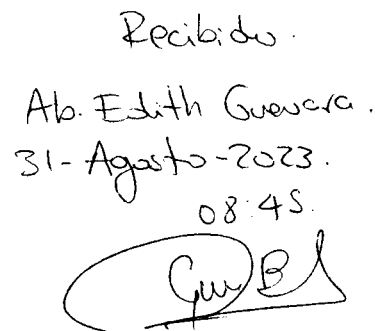 Recibido.
Ab. Edith Guevara.
31-Agosto-2023.
08:45.